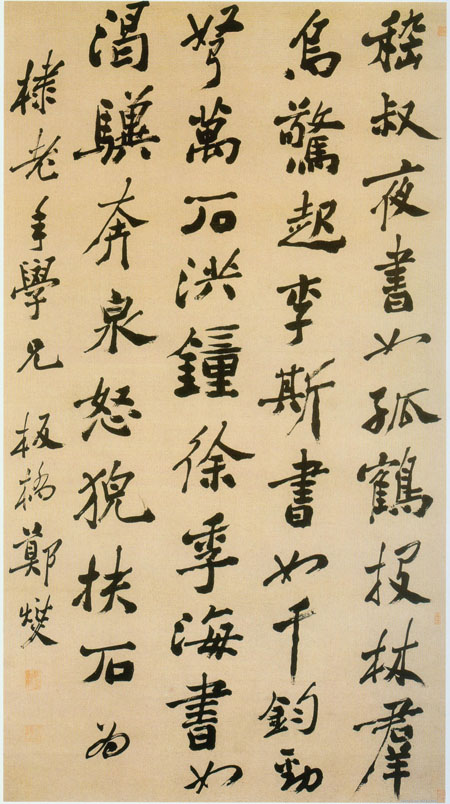 嵇叔夜書如孤鶴投林羣
烏驚起李斯書如千鈞勁
弩萬石洪鐘徐季海書如
渴驥奔泉怒猊抉石為
棣老年學兄 板橋鄭燮